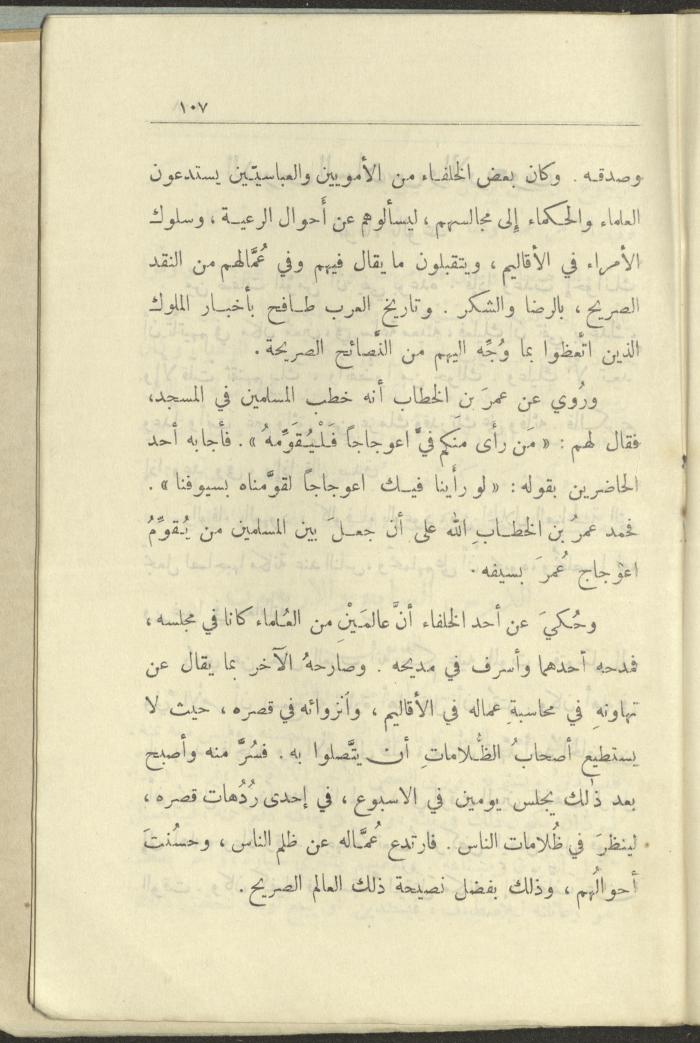 ١٠٧
وصدقه . وكان بعض الخلفاء من الأمويين والعباسيّين يستدعون
العلماء والحكماء إلى مجالسهم ، ليسألوهم عن أحوال الرعية ، وسلوك
الأمراء في الأقاليم ، ويتقبلون ما يقال فيهم وفي عُمَّالهم من النقد
الصريح ، بالرضا والشكر . وتاريخ العرب طافح بأخبار الملوك
الذين اتَّعظوا بما وُجِّه اليهم من النَّصائح الصريحة .
ورُوي عن عمرَ بن الخطاب أنه خطب المسلمين في المسجد،
فقال لهم : « مَن رأى منكم فيَّ اعوجاجاً فَلْيُقَوِّمهُ » . فأجابه أحد
الحاضرين بقوله : « لو رأينا فيك اعوجاجاً لقوَّمناه بسيوفنا » .
فحمد عمرُ بن الخطابِ الله على أن جعلَ بين المسلمين من يُقوِّمُ
اعوجاج عُمرَ بسيفه .
وحُكيَ عن أحد الخلفاء أنَّ عالمَيْنِ من العُلماء كانا في مجلسه ،
فمدحه أحدهما وأسرف في مديحه . وصارحهُ الآخر بما يقال عن
تهاونهِ في محاسبةِ عماله في الأقاليم ، وٱنزوائه في قصره ، حيث لا
يستطيع أصحابُ الظُّلاماتِ أن يتَّصلوا به . فسُرَّ منه وأصبح
بعد ذٰلك يجلس يومين في الاسبوع ، في إحدى رُدُهات قصره ،
لينظرَ في ظُلامات الناس . فارتدع عُمَّاله عن ظلم الناس ، وحسُنتَ
أحوالُهم ، وذلك بفضل نصيحة ذلك العالم الصريح .